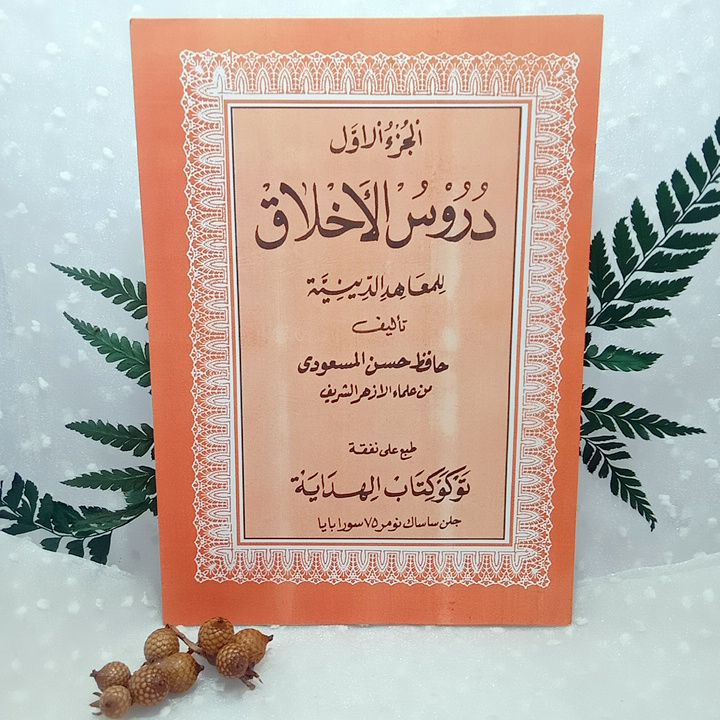 الجُزْءُ الاوَّل
دُرُوْسُ الأَخْلَاقْ
لِلمَعَاهِدِ الدِّينِيَّة
تأليف
حافظ حسن المسعودى
من علماء الازهر الشريف
طبع على نفقة
تَوكَوكِتَابْ الهِدَايَة
جلن ساساك نومر ٧٥ سورابايا